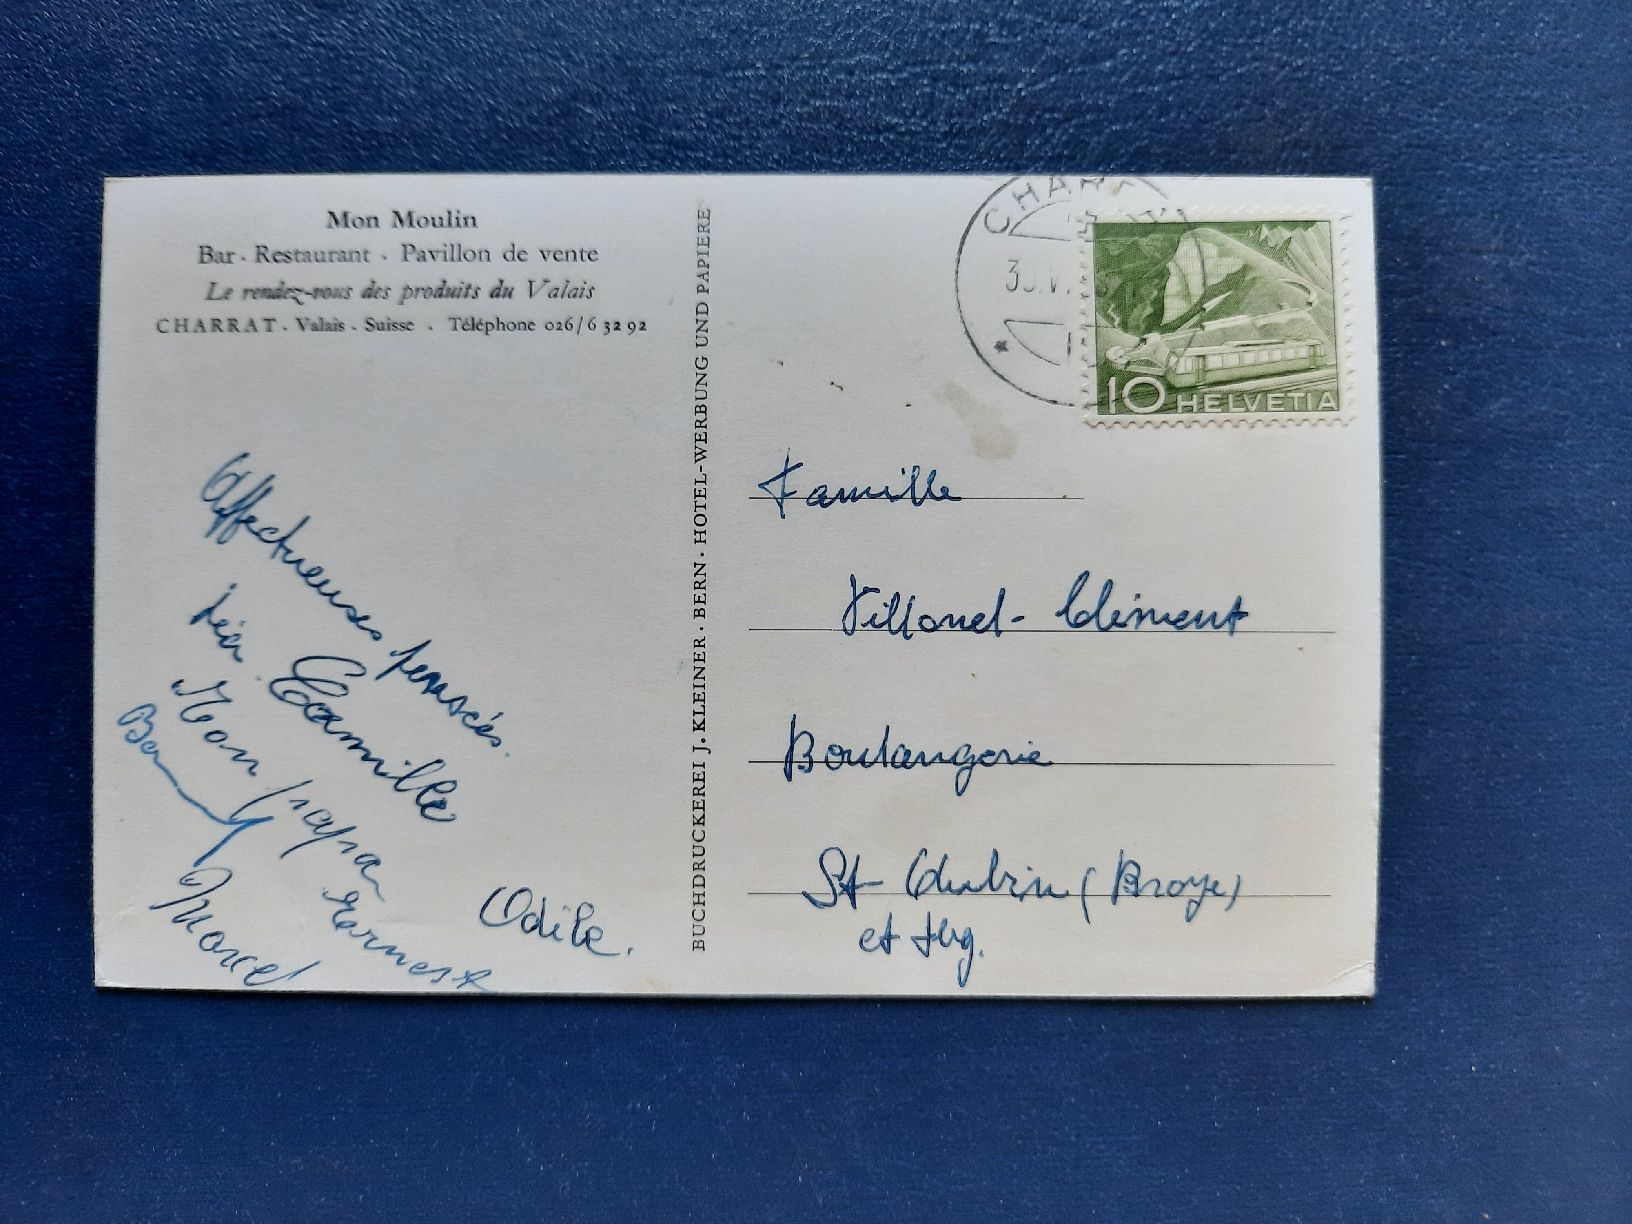 Mon Moulin
Bar - Restaurant - Pavillon de vente
Le rendez-vous des produits du Valais
CHARRAT - Valais - Suisse - Téléphone 026/6 32 92
Affectueuses pensées.
Léa Camille
Mon
Ernest
Marcel
Odile.
BUCHDRUCKEREI J. KLEINER · BERN · HOTEL-WERBUNG UND PAPIERE
CHAR
10 HELVETIA
Famille
Villomet- Clément
Boulangerie
St- Aubin (Broye)
et Fbg.